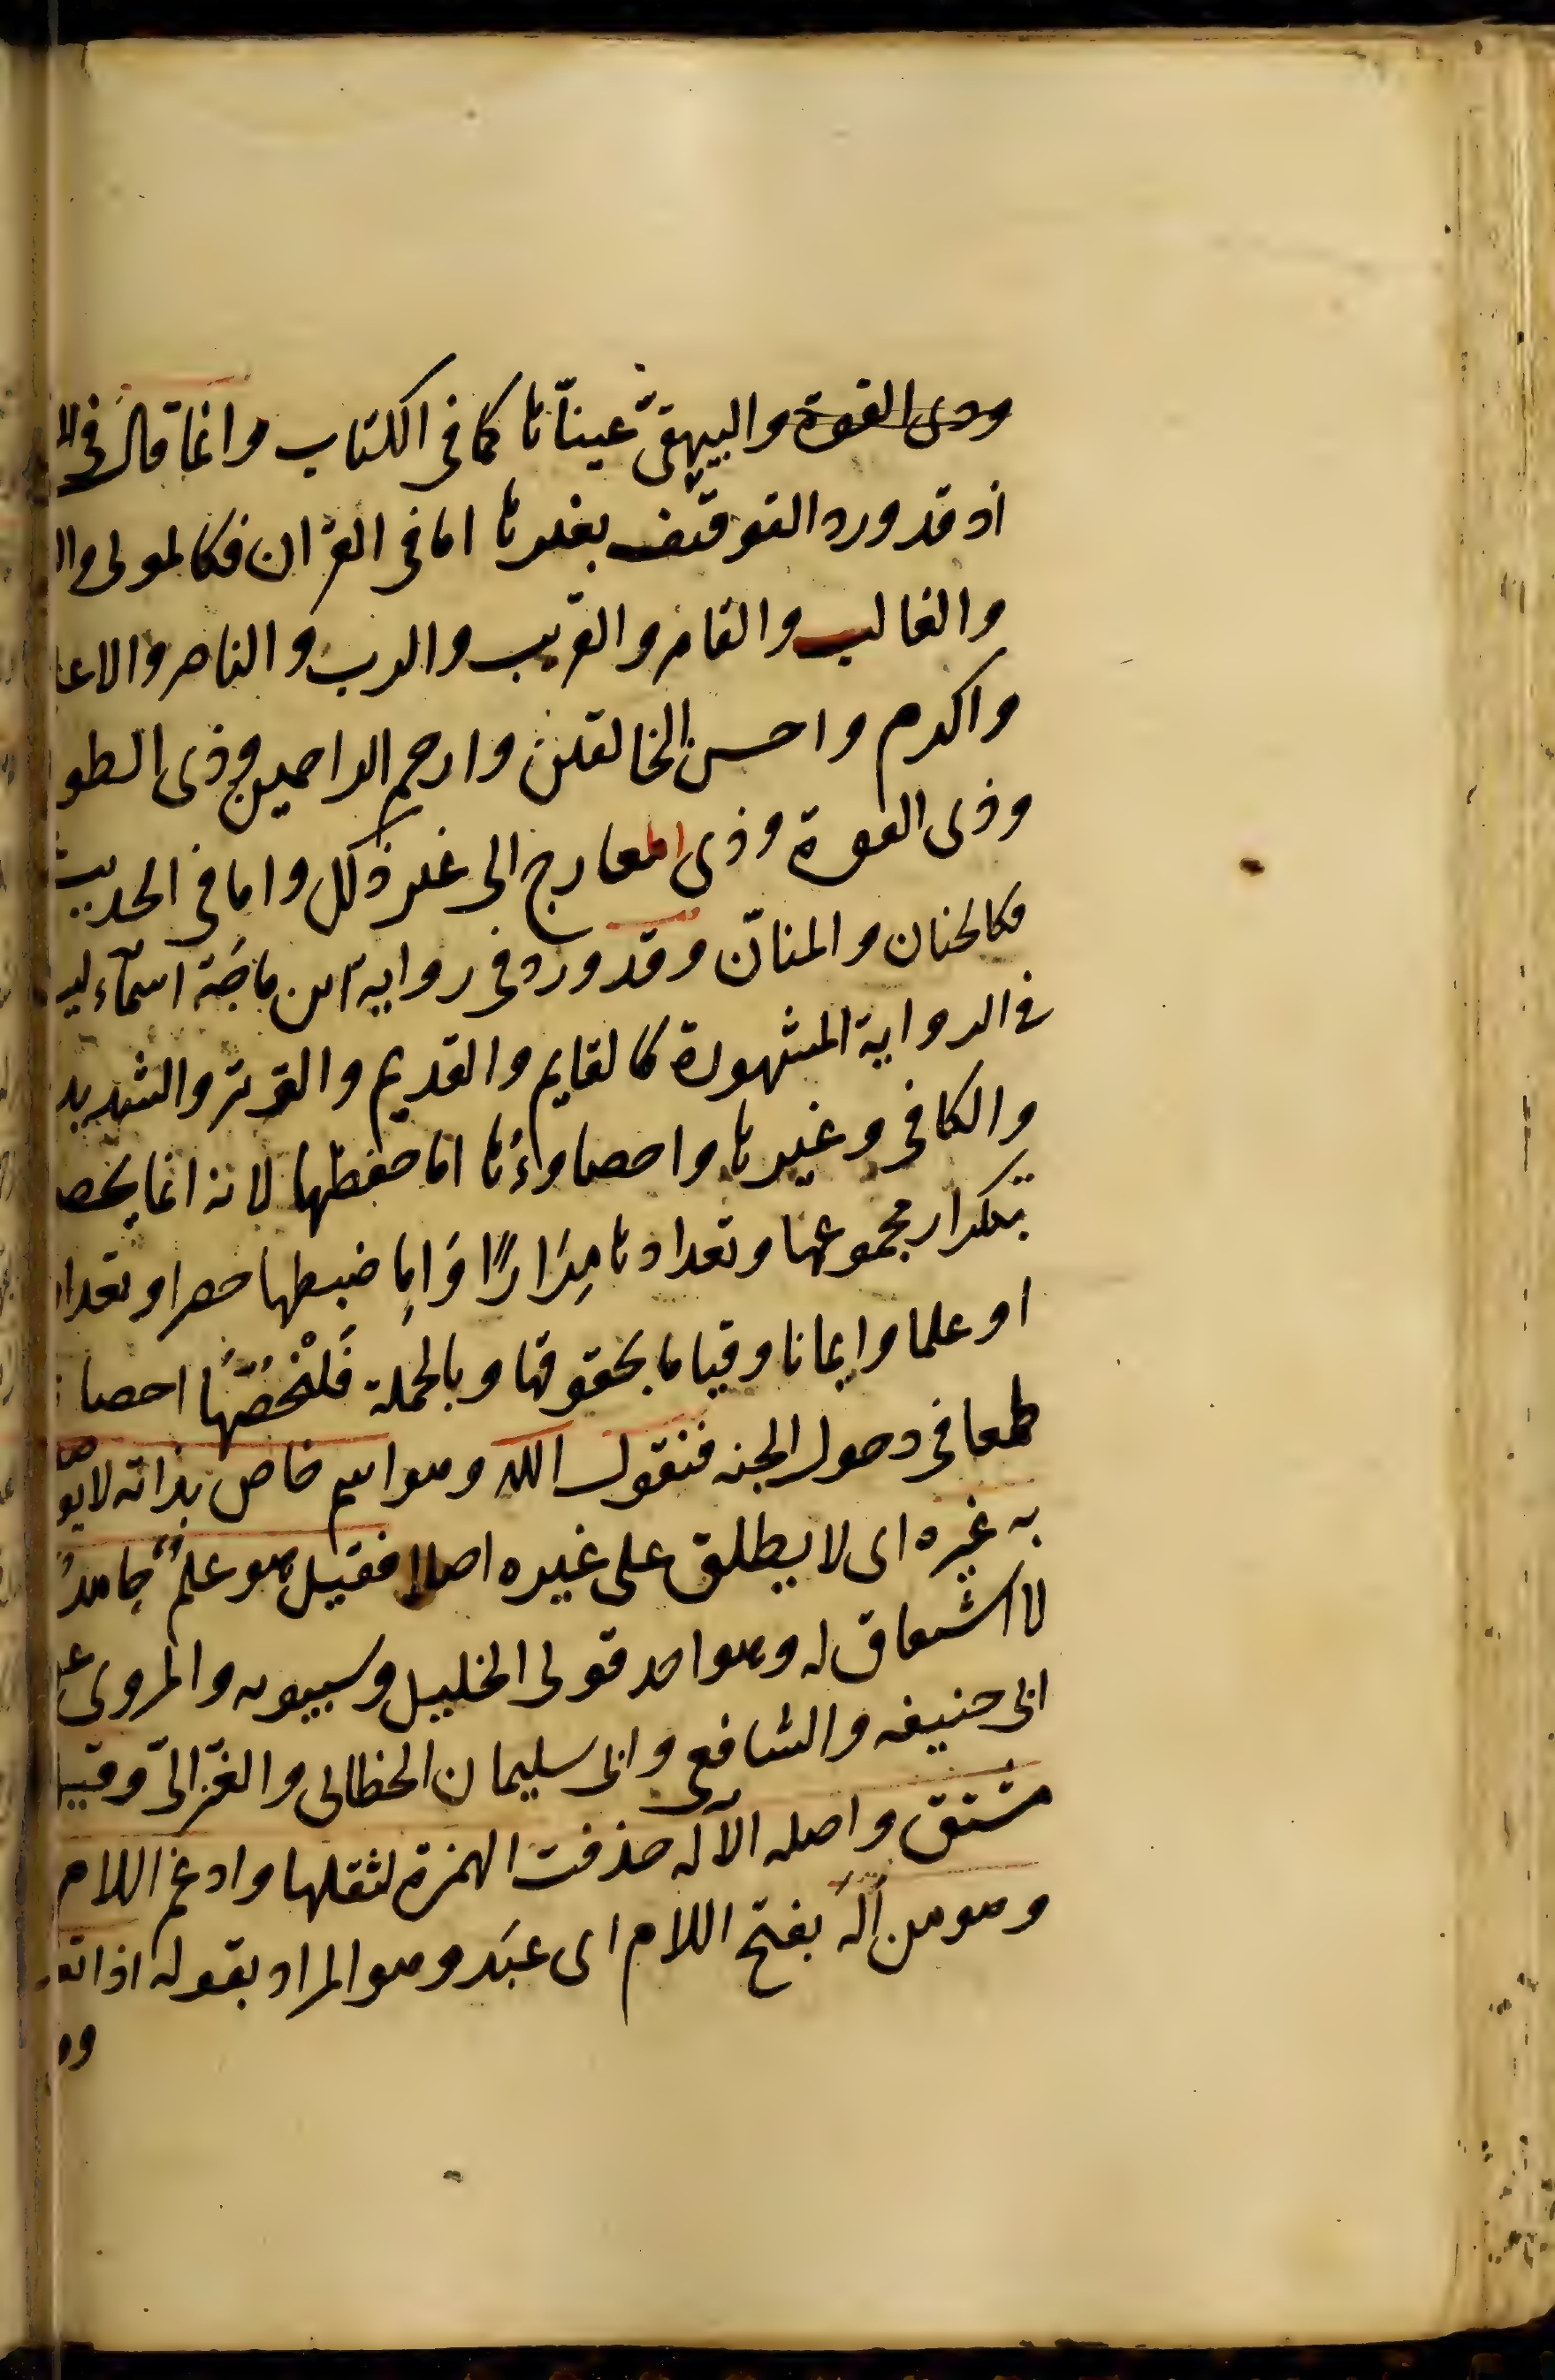 وذى القوة والبيهقىّ عيناّها كما فى الكتاب وانما قال فى
اذ قد ورد التوقيف بغيرها اما فى القرآن فكالمولى وا
والغالب والقاهر والقريب والرب والناصر والاعلى
واكرم واحسن الخالقين وارحم الراحمين وذى الطو
وذى القوة وذى المعارج الى غير ذلك واما فى الحديث
فكالحنان والمنان وقد ورد فى رواية ابن ماجَة اسمآء ليـ
فى الرواية المشهورة كالقايم والقديم والوتر والشديد
والكافى وغيرها واحصاوءُها اما حفظها لانه انما يحصـ
بتكرار مجموعها وتعدادها مِرَارًا وَاِما ضبطها حصرا وتعدا
او علما وايمانا وقياما بحقوقها وبالجملة فَلْنُحْصُهَا احصا
طمعا فى دخول الجنه فنقول الله وهو اسم خاص بذاته لايو
به غيره اى لا يطلق على غيره اصلا فقيل هو علمٌ جامدٌ
لا اشتقاق له وهو احد قولى الخليل وسيبويه والمروى عـ
ابى حنيفه والشافعى وابى سليمان الخطابى والغزالىّ وقيـ
مشتق واصله الآله حذفت الهمزة لثقلها وادغم اللام
وهو من اَلَهَ بفتح اللام اى عبَد وهو المراد بقوله اذا